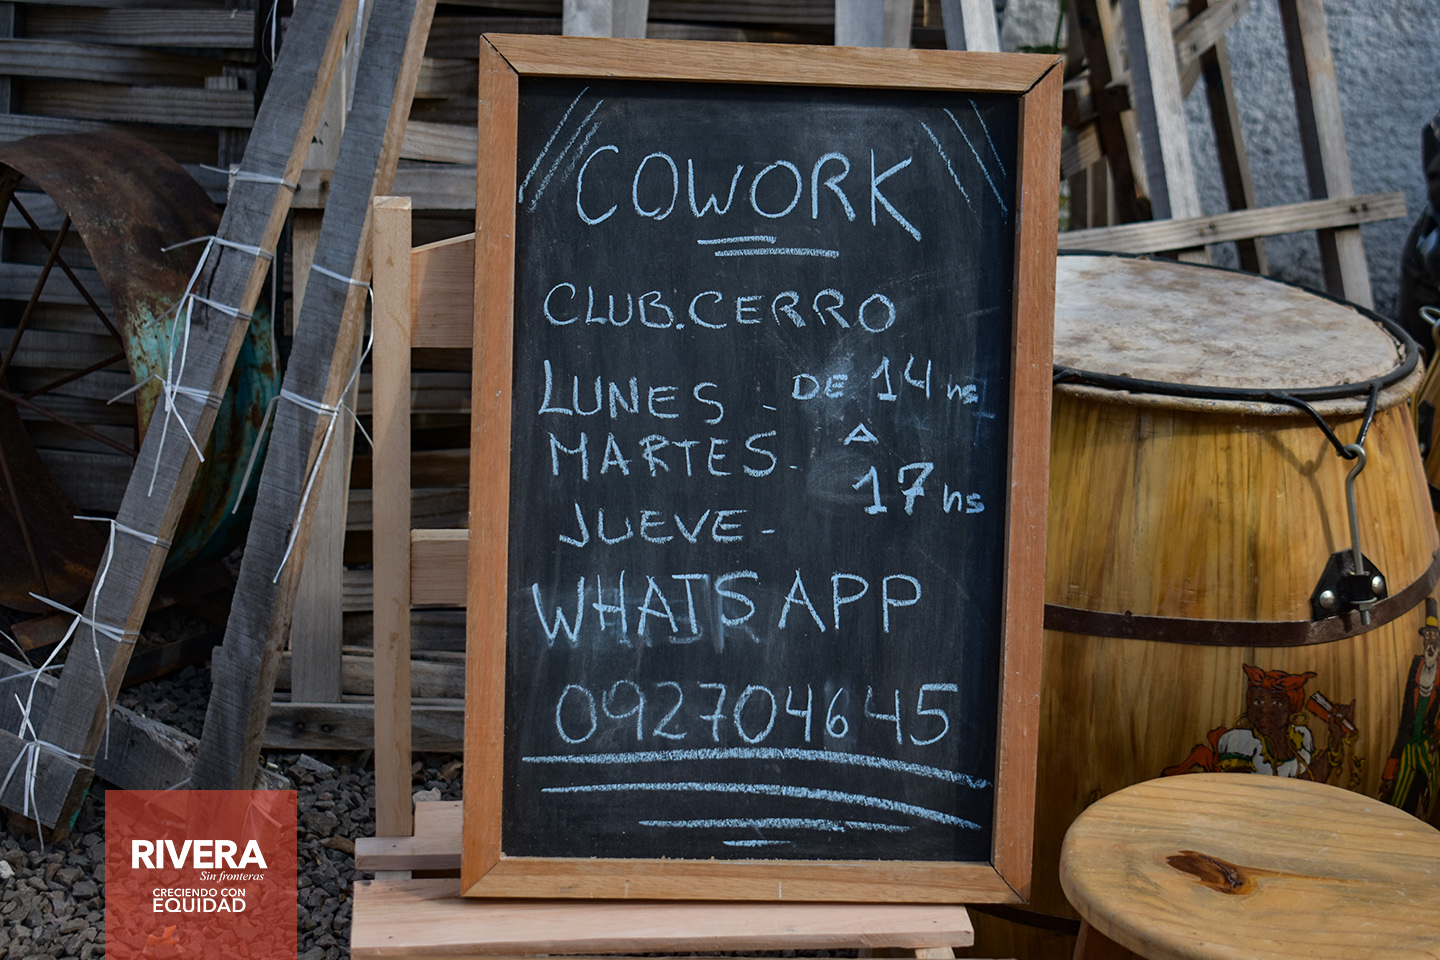 COWORK
CLUB.CERRO
LUNES - DE 14 hs
MARTES - A
17 hs
JUEVE -
WHATSAPP
092704645
RIVERA
Sin fronteras
CRECIENDO CON
EQUIDAD